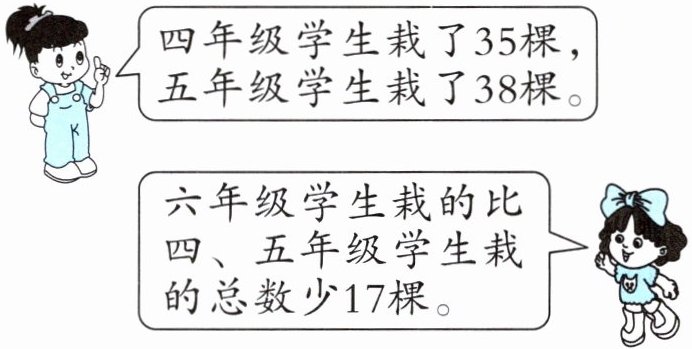 四年级学生栽了35棵，
五年级学生栽了38棵。
六年级学生栽的比
四、五年级学生栽
的总数少17棵。